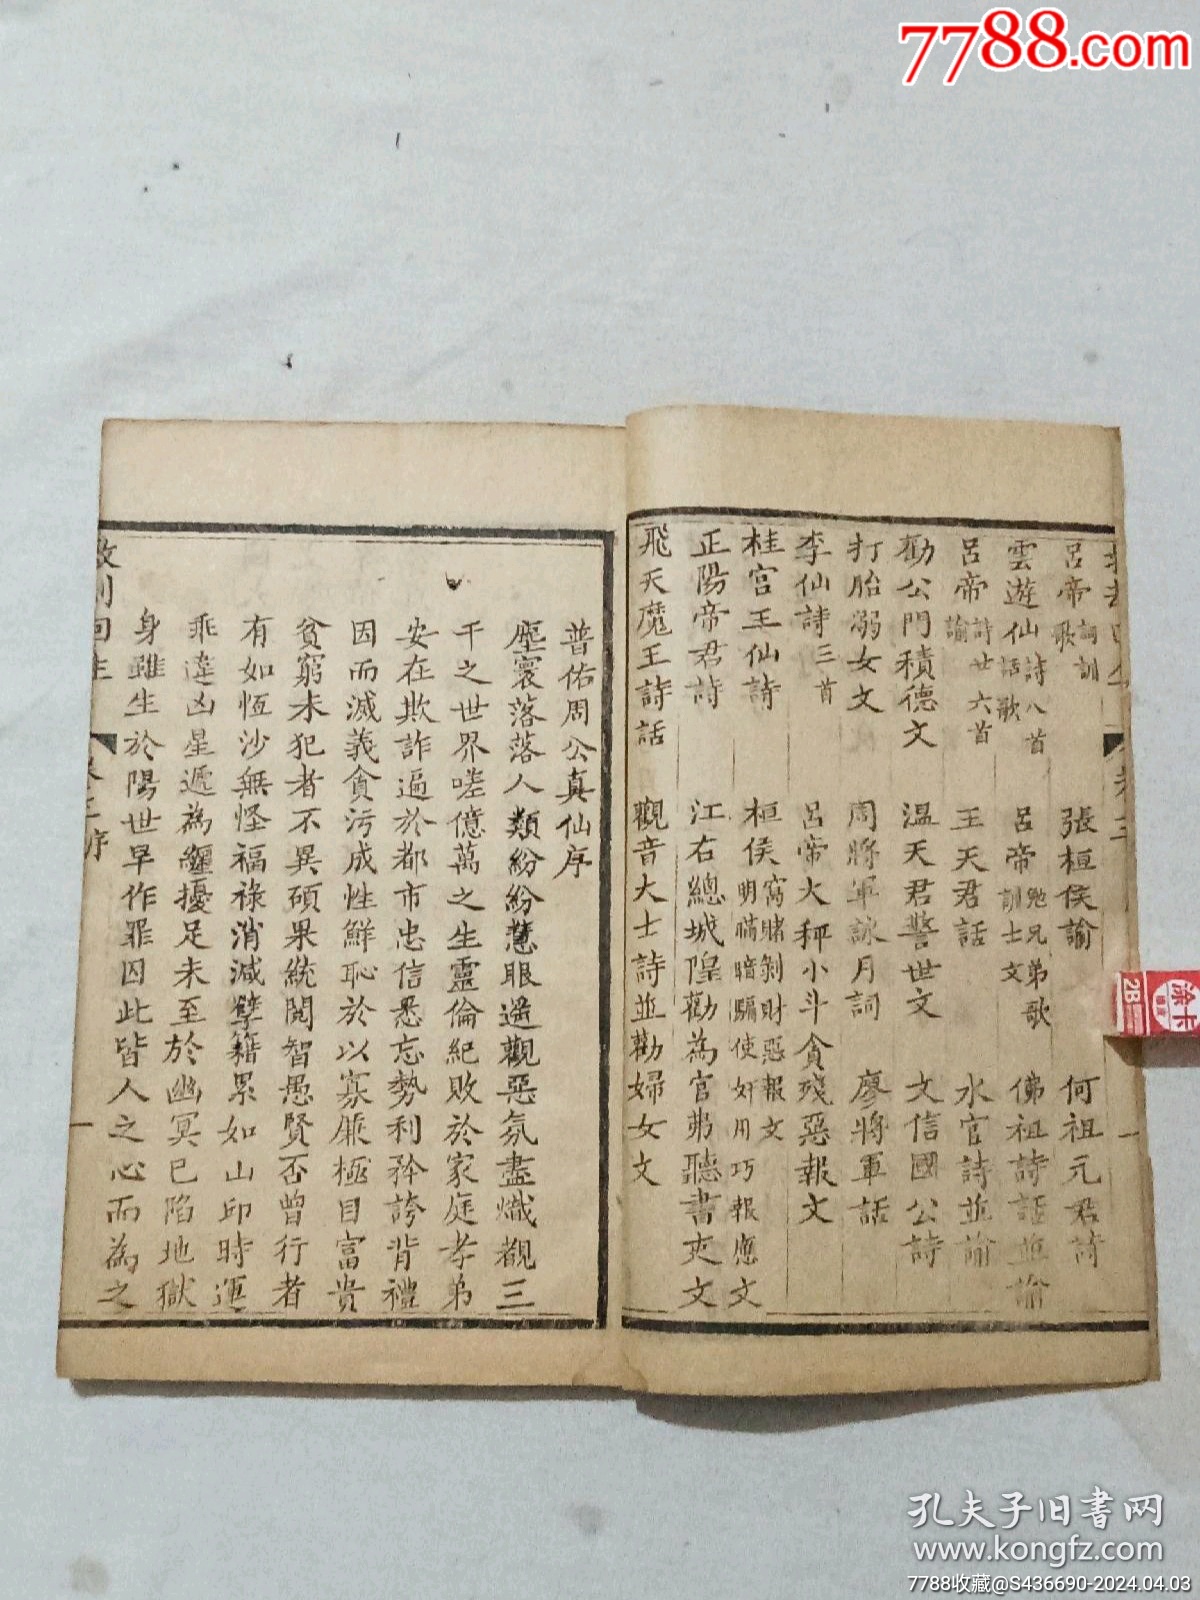 7788.com
呂帝歌 詞訓 張桓侯諭 何祖元君詩
雲遊仙詩八首 話歌 呂帝勉兄弟歌 訓士文 佛祖詩話並諭
呂帝詩廿六首 諭 王天君話 水官詩並諭
勸公門積德文 溫天君警世文 文信國公詩
打胎溺女文 周將軍詠月詞 廖將軍話
李仙詩三首 呂帝大秤小斗貪殘惡報文
桂宮王仙詩 桓侯窩賭剝財惡報文 明瞞暗騙使奸用巧報應文
正陽帝君詩 江右總城隍勸為官弟聽書吏文
飛天魔王詩話 觀音大士詩並勸婦女文
普佑周公真仙序
塵寰落落人類紛紛慧眼遥觀惡氛盡熾觀三
千之世界嗟億萬之生靈倫紀敗於家庭孝弟
安在欺詐遍於都市忠信悉忘勢利矜誇背禮
因而滅義貪污成性鮮恥於以寡廉極目富貴
貧窮未犯者不異碩果統閱智愚賢否曾行者
有如恆沙無怪福祿消減孽籍累如山邱時運
乖違凶星遞為纏擾足未至於幽冥已陷地獄
身雖生於陽世早作罪囚此皆人之心而為之
回生 序 一
涂卡
2B
孔夫子旧书网
www.kongfz.com
7788收藏@S436690-2024.04.03